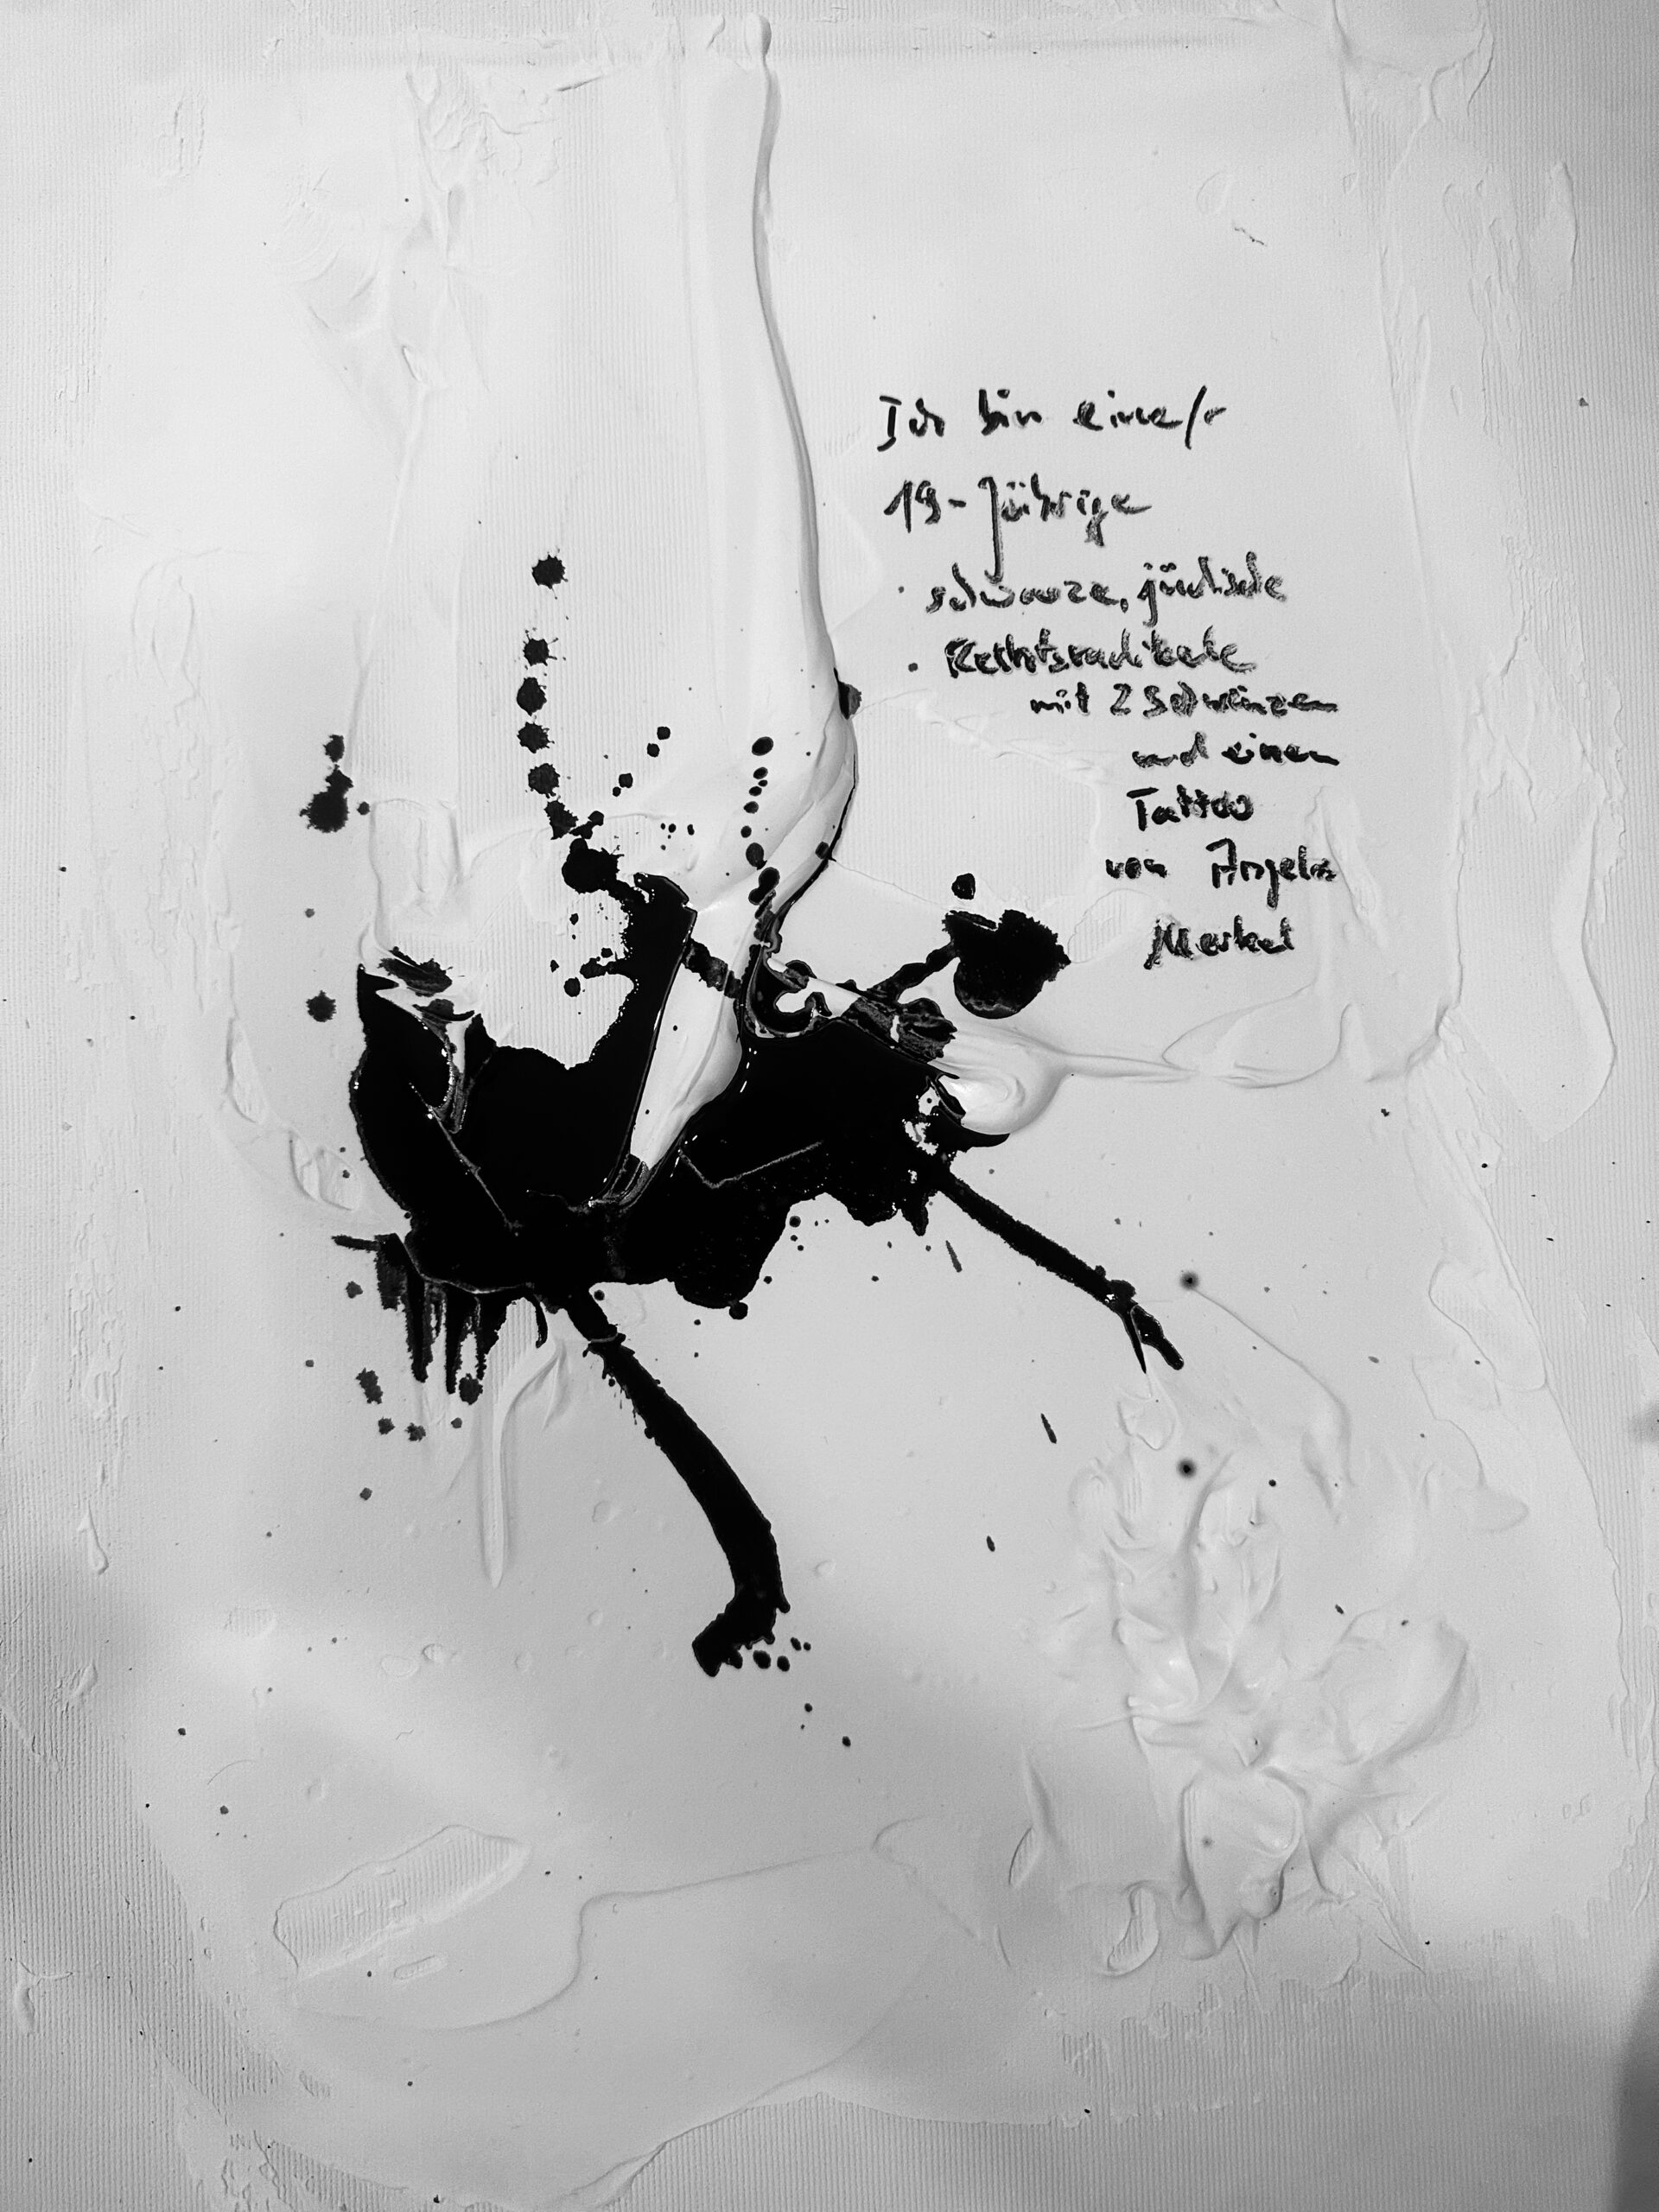 Ich bin eine/r
19-Jährige
schwarze, jüdische
Rechtsradikale
mit 2 Schwänzen
und einen
Tattoo
von Angela
Merkel